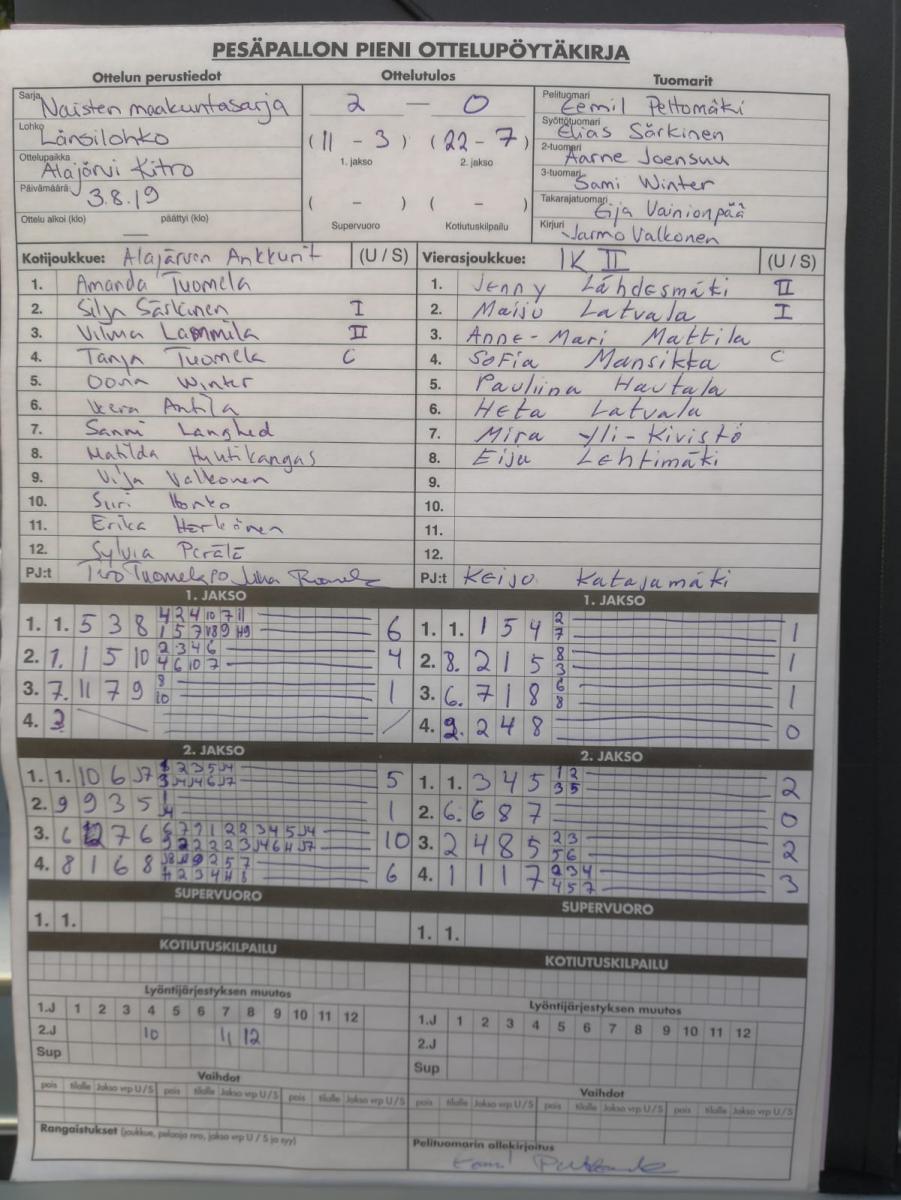 PESÄPALLON PIENI OTTELUPÖYTÄKIRJA
Ottelun perustiedot
Ottelutulos
Tuomarit
Sarja Naisten maakuntasarja
Lohko Länsilohko
Ottelupaikka Alajärvi Kitro
Päivämäärä 3.8.19
Ottelu alkoi (klo) — päättyi (klo)
2 — 0
(11 - 3) (22 - 7)
1. jakso 2. jakso
( - ) ( - )
Supervuoro Kotiutuskilpailu
Pelituomari Eemil Peltomäki
Syöttötuomari Elias Särkinen
2-tuomari Aarne Joensuu
3-tuomari Sami Winter
Takarajatuomari Eija Vainionpää
Kirjuri Jarmo Valkonen
Kotijoukkue: Alajärven Ankkurit (U / S)
1. Amanda Tuomela
2. Silja Särkinen I
3. Vilma Lammila II
4. Tanja Tuomela C
5. Oona Winter
6. Veera Antila
7. Sanni Langhed
8. Matilda Huutikangas
9. Vilja Valkonen
10. Siiri Honko
11. Erika Herkönen
12. Sylvia Perälä
PJ:t
Vierasjoukkue: IK II (U / S)
1. Jenny Lähdesmäki II
2. Maiju Latvala I
3. Anne-Mari Mattila
4. Sofia Mansikka C
5. Pauliina Hautala
6. Heta Latvala
7. Mira Yli-Kivistö
8. Eiju Lehtimäki
9.
10.
11.
12.
PJ:t Keijo Katajamäki
1. JAKSO
1. 1. 5 3 8 6
2. 1. 1 5 10 2 3 4 6 4 6 10 7 4
3. 7. 11 7 9 8 10 1
4. 3
1. JAKSO
1. 1. 1 5 4 2 7 1
2. 8. 2 1 5 8 3 1
3. 6. 7 1 8 6 8 1
4. 2. 2 4 8 0
2. JAKSO
1. 1. 10 6 J7 5
2. 9 9 3 5 1
3. 6 12 7 6 10
4. 8 1 6 8 6
2. JAKSO
1. 1. 3 4 5 1 2 3 5 2
2. 6. 6 8 7 0
3. 2 4 8 5 2 3 5 6 2
4. 1 1 1 7 2 3 4 4 5 7 3
SUPERVUORO
1. 1.
SUPERVUORO
1. 1.
KOTIUTUSKILPAILU
KOTIUTUSKILPAILU
Lyöntijärjestyksen muutos
1.J 1 2 3 4 5 6 7 8 9 10 11 12
2.J 10 11 12
Sup
Lyöntijärjestyksen muutos
1.J 1 2 3 4 5 6 7 8 9 10 11 12
2.J
Sup
Vaihdot
pois tilalle Jakso vrp U/S pois tilalle Jakso vrp U/S pois tilalle Jakso vrp U/S
Rangaistukset (joukkue, pelaaja nro, jakso vrp U / S ja syy)
Vaihdot
pois tilalle Jakso vrp U/S pois tilalle Jakso vrp U/S pois tilalle Jakso vrp U/S
Pelituomarin allekirjoitus